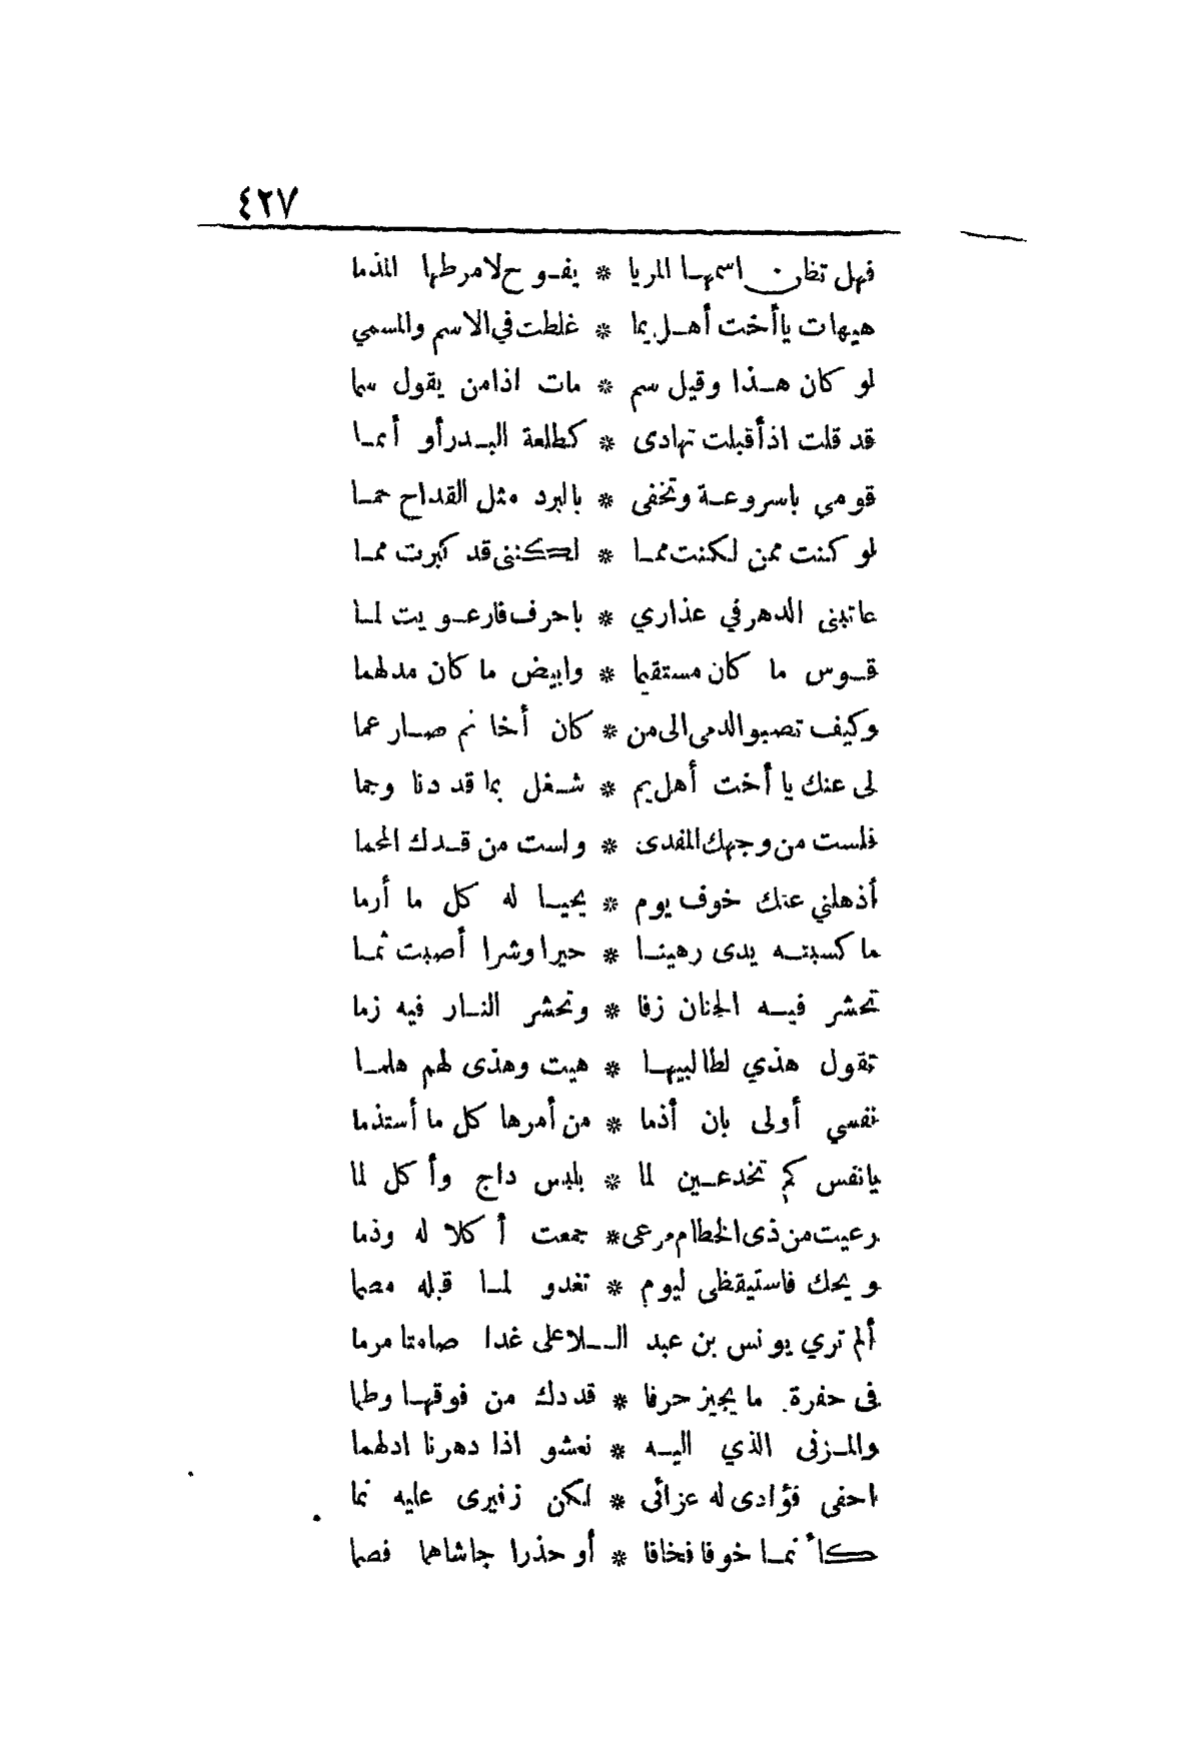 ٤٢٧
فهل تظن اسمها المريا * يفوح لا مرطها المذما
هيهات يا أخت أهل بما * غلطت في الاسم والمسمي
لو كان هذا وقيل سم * مات اذا من يقول سما
قد قلت اذ أقبلت تهادى * كطلعة البدر أو أتما
قومي باسروعة وتخفى * بالبرد مثل القداح حما
لو كنت ممن لكنت مما * لكننى قد كبرت مما
عاتبنى الدهر في عذاري * باحرف فارعويت لما
قوس ما كان مستقيما * وابيض ما كان مدلهما
وكيف تصبو الدمى الى من * كان أخا ثم صار عما
لى عنك يا أخت أهل يم * شغل بما قد دنا وجما
فلست من وجهك المفدى * ولست من قدك المحما
أذهلني عنك خوف يوم * يحيا له كل ما أرما
ما كسبته يدى رهينا * خيرا وشرا أصبت ثما
تحشر فيه الجنان زفا * وتحشر النار فيه زما
تقول هذي لطالبيها * هيت وهذى لهم هلما
نفسي أولى بان أذما * من أمرها كل ما أستذما
يانفس كم تخدعين لما * بلبس داج وأكل لما
رعيت من ذى الحطام مرعى * جمعت أكلا له وذما
ويحك فاستيقظى ليوم * تغدو لما قبله مصما
ألم تري يونس بن عبد الـلاعلى غدا صامتا مرما
فى حفرة ما يجيز حرفا * قد دك من فوقها وطما
والمزنى الذي اليه * نعشو اذا دهرنا ادلهما
احفى فؤادى له عزائى * لكن زفيرى عليه نما
كأنما خوفا فخافا * أو حذرا جاشاهما فصما